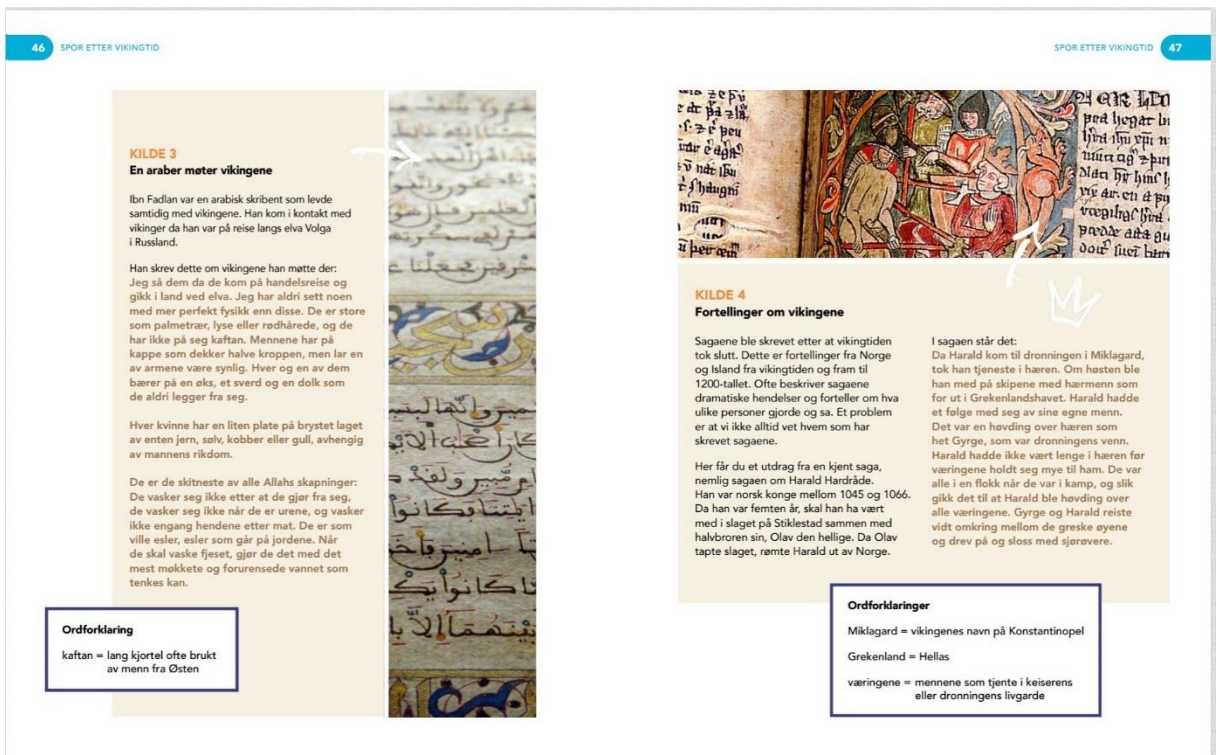 46 SPOR ETTER VIKINGTID
KILDE 3
En araber møter vikingene
Ibn Fadlan var en arabisk skribent som levde
samtidig med vikingene. Han kom i kontakt med
vikinger da han var på reise langs elva Volga
i Russland.
Han skrev dette om vikingene han møtte der:
Jeg så dem da de kom på handelsreise og
gikk i land ved elva. Jeg har aldri sett noen
med mer perfekt fysikk enn disse. De er store
som palmetrær, lyse eller rødhårede, og de
har ikke på seg kaftan. Mennene har på
kappe som dekker halve kroppen, men lar en
av armene være synlig. Hver og en av dem
bærer på en øks, et sverd og en dolk som
de aldri legger fra seg.
Hver kvinne har en liten plate på brystet laget
av enten jern, sølv, kobber eller gull, avhengig
av mannens rikdom.
De er de skitneste av alle Allahs skapninger:
De vasker seg ikke etter at de gjør fra seg,
de vasker seg ikke når de er urene, og vasker
ikke engang hendene etter mat. De er som
ville esler, esler som går på jordene. Når
de skal vaske fjeset, gjør de det med det
mest møkkete og forurensede vannet som
tenkes kan.
Ordforklaring
kaftan = lang kjortel ofte brukt
av menn fra Østen
SPOR ETTER VIKINGTID 47
KILDE 4
Fortellinger om vikingene
Sagaene ble skrevet etter at vikingtiden
tok slutt. Dette er fortellinger fra Norge
og Island fra vikingtiden og fram til
1200-tallet. Ofte beskriver sagaene
dramatiske hendelser og forteller om hva
ulike personer gjorde og sa. Et problem
er at vi ikke alltid vet hvem som har
skrevet sagaene.
Her får du et utdrag fra en kjent saga,
nemlig sagaen om Harald Hardråde.
Han var norsk konge mellom 1045 og 1066.
Da han var femten år, skal han ha vært
med i slaget på Stiklestad sammen med
halvbroren sin, Olav den hellige. Da Olav
tapte slaget, rømte Harald ut av Norge.
I sagaen står det:
Da Harald kom til dronningen i Miklagard,
tok han tjeneste i hæren. Om høsten ble
han med på skipene med hærmenn som
for ut i Grekenlandshavet. Harald hadde
et følge med seg av sine egne menn.
Det var en høvding over hæren som
het Gyrge, som var dronningens venn.
Harald hadde ikke vært lenge i hæren før
væringene holdt seg mye til ham. De var
alle i en flokk når de var i kamp, og slik
gikk det til at Harald ble høvding over
alle væringene. Gyrge og Harald reiste
vidt omkring mellom de greske øyene
og drev på og sloss med sjørøvere.
Ordforklaringer
Miklagard = vikingenes navn på Konstantinopel
Grekenland = Hellas
væringene = mennene som tjente i keiserens
eller dronningens livgarde